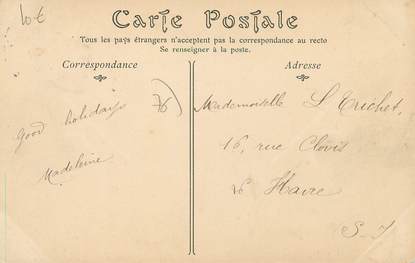 10€
Carte Postale
Tous les pays étrangers n'acceptent pas la correspondance au recto
Se renseigner à la poste.
Correspondance
Adresse
76)
Good holidays
Madeleine
Mademoiselle L Trichet,
16, rue Clovis
Le Havre
S-I